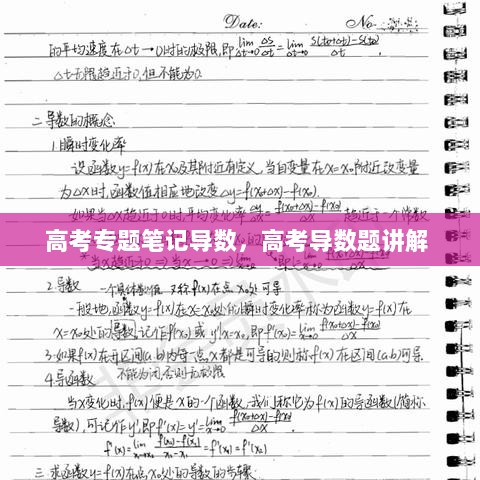 Date: No.
的平均速度在Δt→0时的极限,即 lim Δt→0 Δs/Δt = lim Δt→0 S(t₀+Δt)-S(t₀)/Δt
Δt无限趋近于0,但不能为0.
二 导数的概念
1.瞬时变化率
设函数y=f(x)在x₀及其附近有定义,当自变量在x=x₀附近改变量
为Δx时,函数值相应地改变Δy=f(x₀+Δx)-f(x₀).
如果当Δx趋近于0时,平均变化率 趋近于一个常数
高考专题笔记导数，高考导数题讲解
2.导数 一个具体数值 又称f(x)在点x₀处可导
一般地,函数y=f(x)在x=x₀处的瞬时变化率称为函数y=f(x)在
x=x₀处的导数,记作f'(x₀)或y'|x=x₀,即f'(x₀)=lim Δx→0 f(x₀+Δx)-f(x₀)/Δx
3.如果f(x)在开区间(a,b)内每一点x都是可导的则称f(x)在区间(a,b)可导
4.导函数 不能为闭否则无极限
当x变化时,f'(x)便是x的一个函数,我们称它为f(x)的导函数(简称
导数),可记作y',即f'(x)=y'=lim Δx→0 f(x+Δx)-f(x)/Δx
三 求函数y=f(x)在点x₀处的导数的步骤: